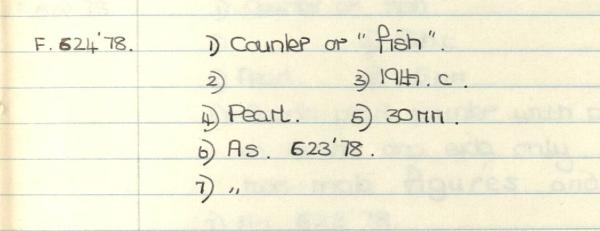 F. 624'78. 1) Counter or "fish".
2) 3) 19th. c.
4) Pearl. 5) 30mm.
6) As. 623'78.
7) "